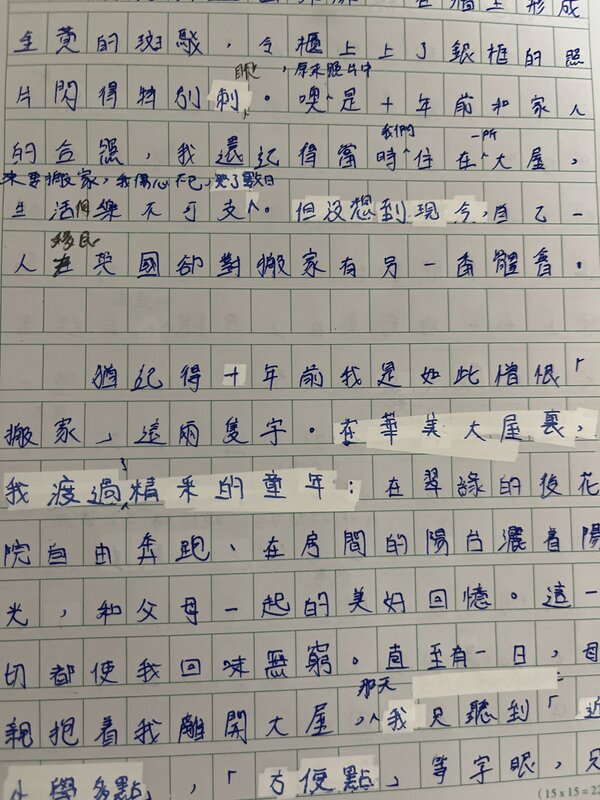 在牆上形成
金黃的斑駁，令櫃上上了銀框的照
眼，原來照片中
片閃得特別刺。噢是十年前和家人
我們 一所
的合照，我還記得當時住在大屋，
來要搬家，我傷心不已，哭了數日
生活快樂不可支。但沒想到現今，自己一
移民
人在英國卻對搬家有另一番體會。
猶記得十年前我是如此憎恨「
搬家」這兩隻字。在華美大屋裏，
我渡過精采的童年：在翠綠的後花
院自由奔跑、在房間的陽台灑着陽
光，和父母一起的美好回憶。這一
切都使我回味無窮。直至有一日，母
那天
親抱着我離開大屋，我只聽到「近
小學多點」，「方便點」等字眼，只
(15x15=22